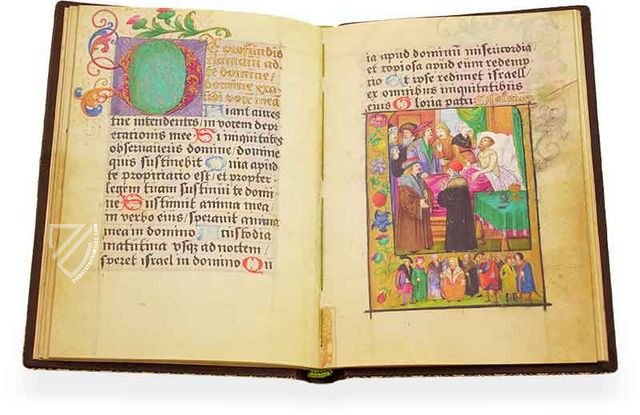 De profundis
clamavi ad te
domine / domine
exaudi
vocem mea
Fiant aures
tue intendentes / in vocem depr
ecationis mee Si iniquitates
observaveris domine / domine
quis sustinebit Quia apud
te propitiatio est / et propter
legem tuam sustinui te domi
ne Sustinuit anima mea
in verbo eius / speravit anima
mea in domino A custodia
matutina vsq ad noctem /
speret israel in domino Qu
ia apud dominū misericordia /
et copiosa apud eum redemp
tio Et ipse redimet israel /
ex omnibus iniquitatibus
eius Gloria patri
FACSIMILEFINDER.COM